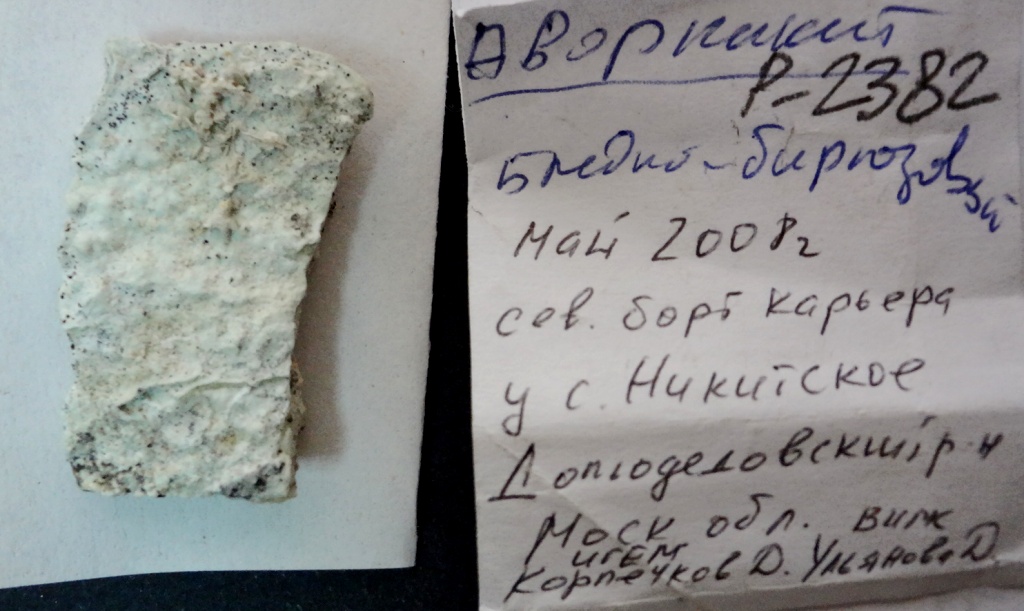 Дворкикит
Р-2382
Бледно-бирюзовый
май 2008г
сев. борт карьера
у с. Никитское
Домоделовский р-н
Моск обл. ВИМС
ИГЕМ
Корпечков Д. Ульянова Д.